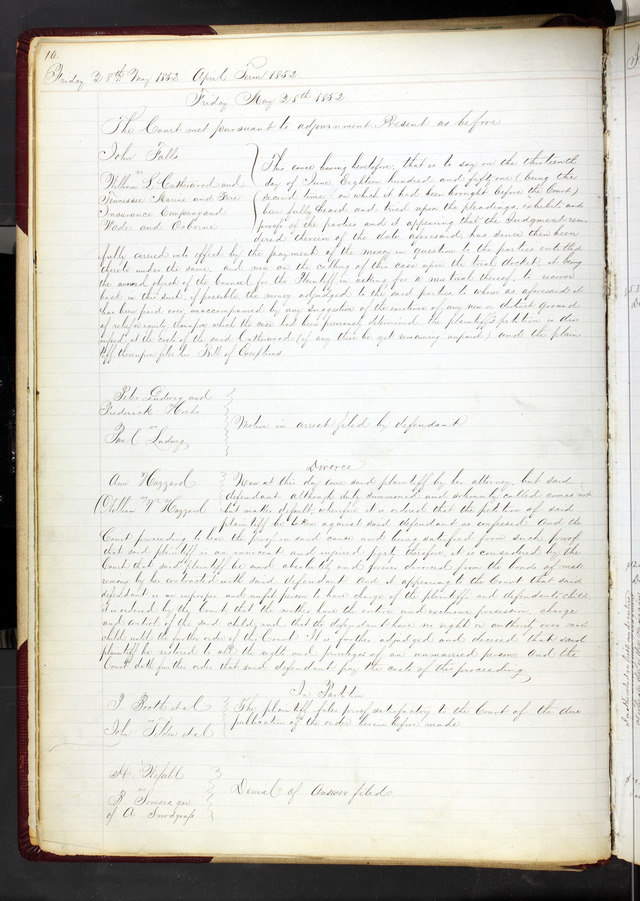 10.
Friday 28th May 1852 April Term 1852
Friday May 28th 1852
The Court met pursuant to adjournment Present as before
John Falls
vs
William S. Catherwood and
Tennessee Marine and Fire
Insurance Company and
Wade and Osborne
This cause having heretofore, that is to say on the thirteenth
day of June Eighteen hundred and fifty one (being the
second time on which it had been brought before the Court)
been fully heard and tried upon the pleadings, exhibits and
proofs of the parties and it appearing that the Judgment ren
dered therein of the date aforesaid has since then been
fully carried into effect by the payment of the money in question to the parties entitled
thereto under the same, and now on the calling of this case upon the trial docket, it being
the avowed object of the Counsel for the Plaintiff in asking for a new trial thereof, to recover
back in this suit, if possible the money adjudged to the said parties to whom as aforesaid it
has been paid over, unaccompanied by any suggestion of the existence of any new or distinct ground
of relief or equity, than upon which the case had been previously determined, the plaintiff's petition is dism
issed at the costs of the said Catherwood (if any there be yet remaining unpaid) and the plain
tiff thereupon files his Bill of Exceptions
Peter Ludwig and
Frederick
vs
Paul Ludwig
Motion in arrest filed by defendant
Divorce
Ann Hazzard
vs
William Hazzard
Now at this day came said plaintiff by her attorney, but said
defendant although duly summoned and solemnly called comes not
but makes default, wherefore it is ordered that the petition of said
plaintiff be taken against said defendant as confessed. And the
Court proceeding to hear the proof in said cause and being satisfied from such proof
that said plaintiff is an innocent and injured party therefore, it is considered by the
Court that said plaintiff be and absolutely and forever divorced from the bonds of mat
rimony by her contracted with said defendant. And it appearing to the Court that said
defendant is an improper and unfit person to have charge of the plaintiffs and defendants child,
it is ordered by the Court that the mother have the entire and exclusive possession, charge
and control of the said child, and that the defendant have no right or authority over said
child until the further order of the Court. It is further adjudged and decreed that said
plaintiff be restored to all the rights and privileges of an unmarried person. And the
Court doth further order that said defendant pay the costs of this proceeding
In Partition
J Booth et al
vs
John et al
The plaintiffs file proof satisfactory to the Court of the due
publication of the order herein before made
H.
vs
of A Snodgrass
Denial of Answer filed